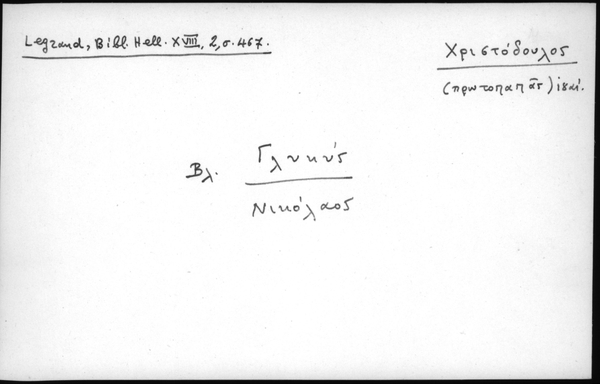 Legrand, Bibl. Hell. XVIII, 2, σ. 467.
Χριστόδουλος
(πρωτοπαπᾶς)
Βλ. Γλυκύς
Νικόλαος